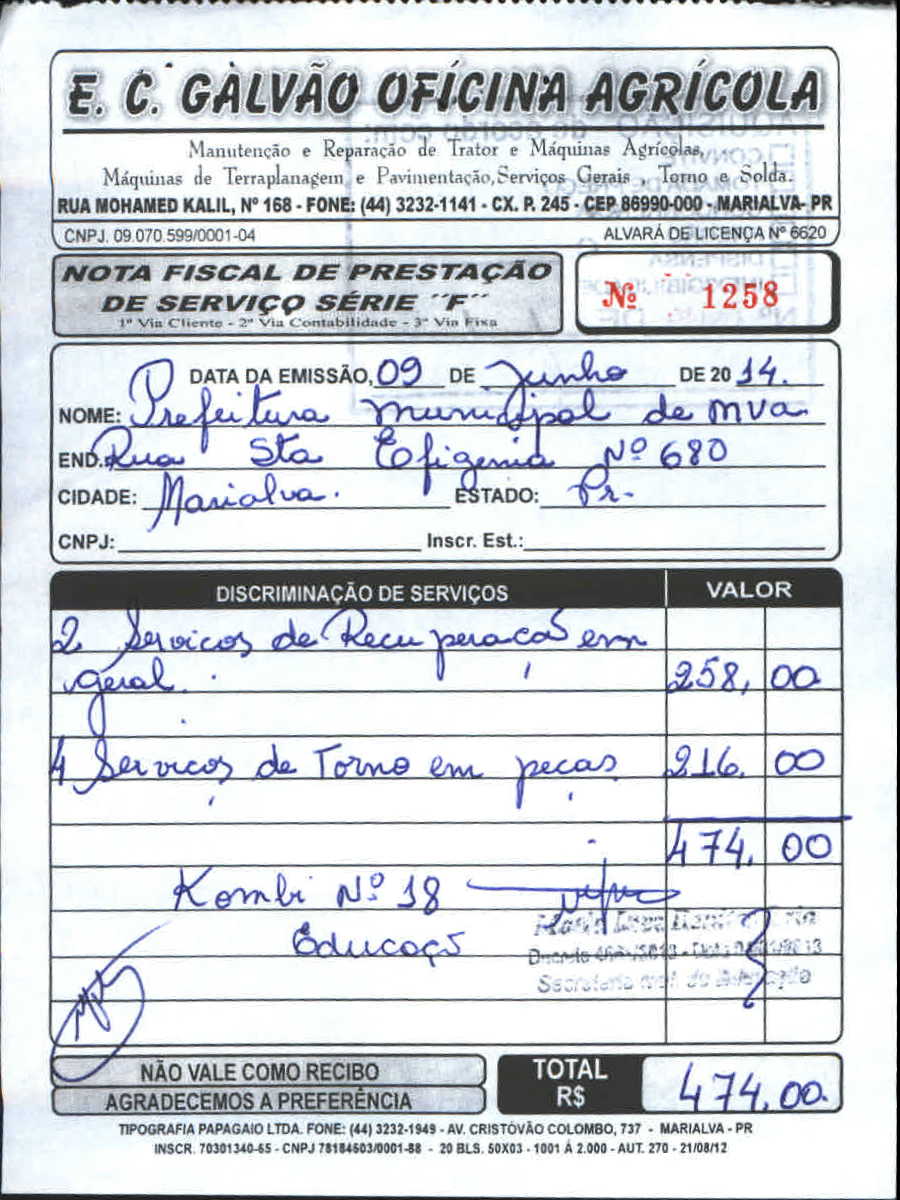 E. C. GALVÃO OFÍCINA AGRÍCOLA
Manutenção e Reparação de Trator e Máquinas Agrícolas,
Máquinas de Terraplanagem e Pavimentação, Serviços Gerais - Torno e Solda.
RUA MOHAMED KALIL, Nº 168 - FONE: (44) 3232-1141 - CX. P. 245 - CEP 86990-000 - MARIALVA- PR
CNPJ. 09.070.599/0001-04 ALVARÁ DE LICENÇA Nº 6620
NOTA FISCAL DE PRESTAÇÃO
DE SERVIÇO SÉRIE "F"
1ª Via Cliente - 2ª Via Contabilidade - 3ª Via Fixa
Nº 1258
DATA DA EMISSÃO, 09 DE Junho DE 20 14.
NOME: Prefeitura Municipal de MVA
END. Rua Sta Efigenia Nº 680
CIDADE: Marialva. ESTADO: Pr.
CNPJ: Inscr. Est.:
DISCRIMINAÇÃO DE SERVIÇOS VALOR
2 Serviços de Recuperação em
geral. 258,00
4 Serviços de Torno em peças 216,00
474,00
Kombi Nº 18
Educação
NÃO VALE COMO RECIBO
AGRADECEMOS A PREFERÊNCIA
TOTAL
R$ 474,00.
TIPOGRAFIA PAPAGAIO LTDA. FONE: (44) 3232-1949 - AV. CRISTÓVÃO COLOMBO, 737 - MARIALVA - PR
INSCR. 70301340-65 - CNPJ 78184603/0001-88 - 20 BLS. 50X03 - 1001 Á 2.000 - AUT. 270 - 21/08/12